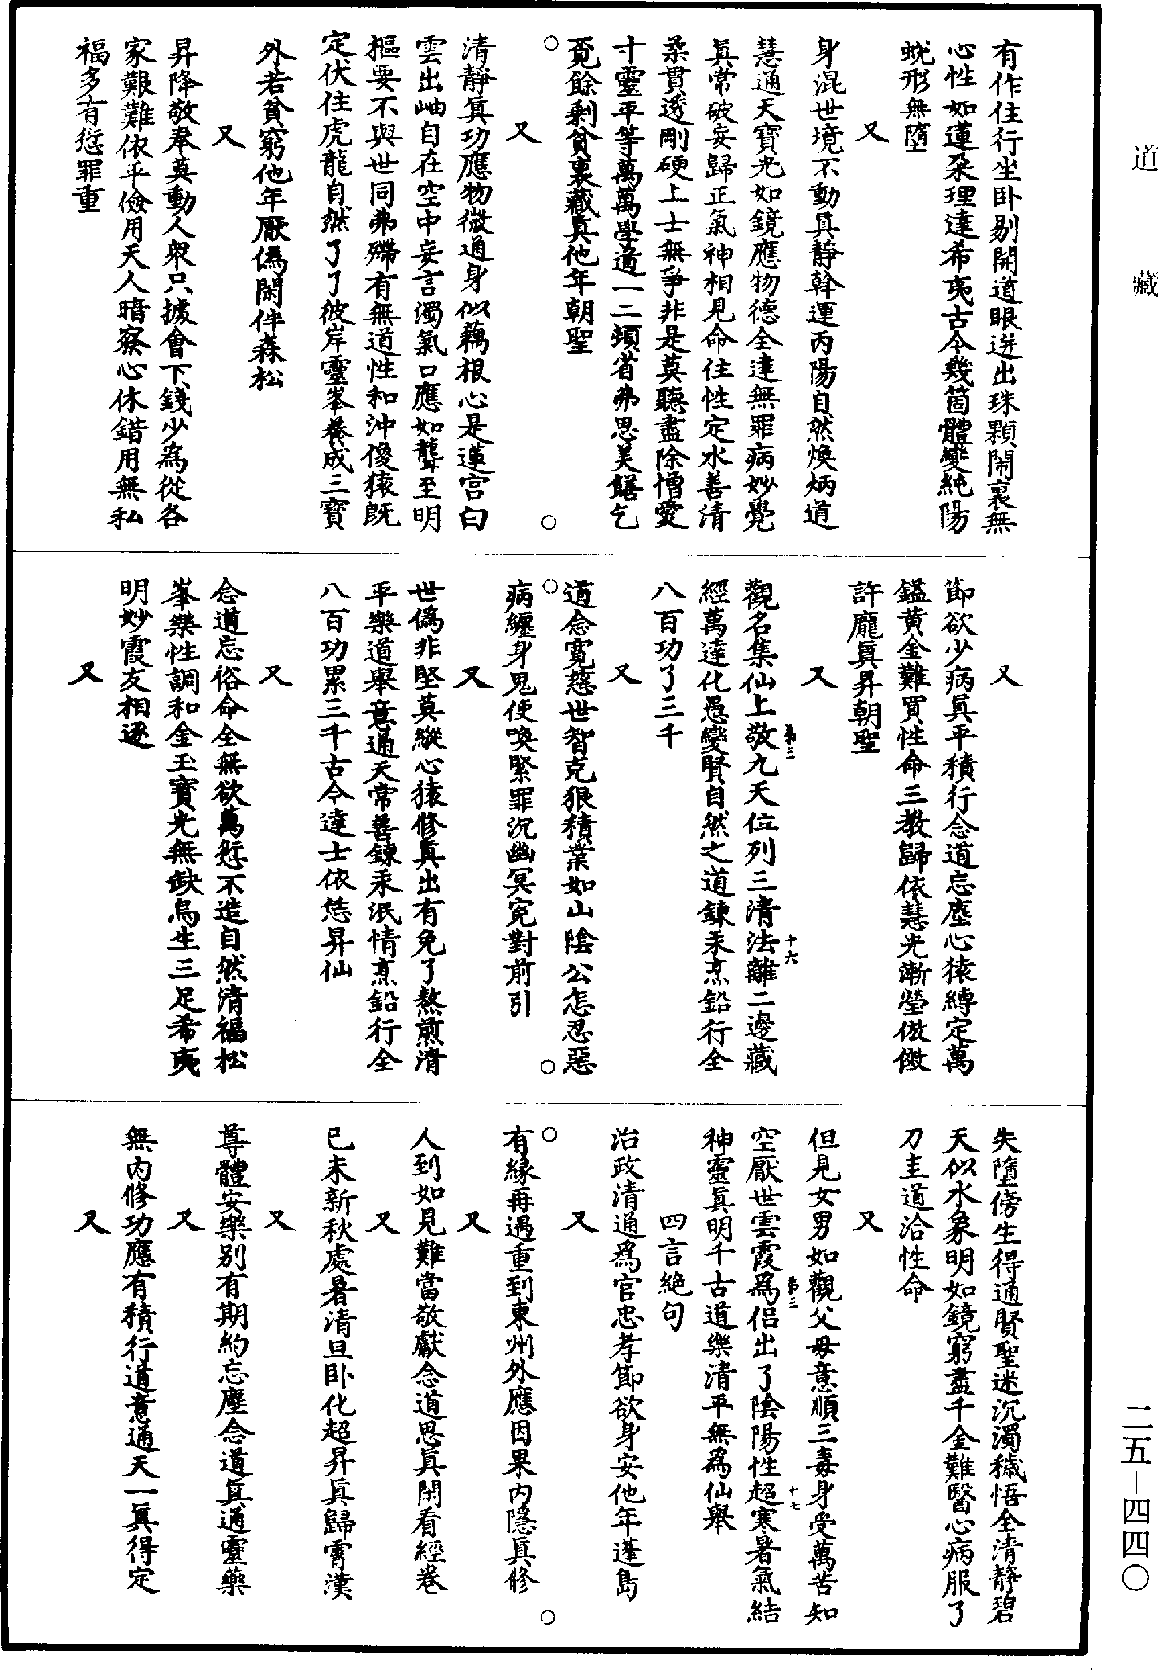 道藏
有作住行坐卧剔開道眼迸出珠顆鬧裏無
心性如蓮朶理達希夷古今幾箇體變純陽
蛻形無墮
又
身混世境不動真靜斡運丙陽自然煥炳道
慧通天寶光如鏡應物德全達無罪病妙覺
真常破妄歸正氣神相見命住性定水善清
柔貫透剛硬上士無爭非是莫聽盡除憎愛
十靈平等萬萬學道一二頻省弗思美饍乞
覓餘剩貧裏藏真他年朝聖
又
清靜真功應物微通身似藕根心是蓮宮白
雲出岫自在空中妄言濁氣口應如聾至明
樞要不與世同弗殢有無道性和沖傻猿既
定伏住虎龍自然了了彼岸靈峯養成三寶
外若貧窮他年厭僞閑伴森松
又
昇降敬奉莫動人衆只據會下錢少為從各
家艱難依平儉用天人暗察心休錯用無私
福多有愆罪重
又
節欲少病真平積行念道忘塵心猿縛定萬
鎰黃金難買性命三教歸依慧光漸瑩倣傚
許龐真昇朝聖
又
觀名集仙上敬九天位列三清法離二邊藏
第三
十六
經萬達化愚變賢自然之道鍊汞烹鉛行全
八百功了三千
又
道念寬慈世智克狠積業如山陰公怎忍惡
病纏身鬼使喚緊罪沉幽冥冤對前引
又
世僞非堅莫縱心猿修真出有免了熬煎清
平樂道舉意通天常善鍊汞泯情烹鉛行全
八百功累三千古今達士依恁昇仙
又
念道忘俗命全無欲萬愆不造自然清福松
峯樂性調和金玉寶光無缺烏生三足希夷
明妙霞友相逐
又
失墮傍生得通賢聖迷沉濁穢悟全清靜碧
天似水象明如鏡窮盡千金難醫心病服了
刀圭道洽性命
又
但見女男如觀父母意順三毒身受萬苦知
第三
十七
空厭世雲霞為侶出了陰陽性超寒暑氣結
神靈真明千古道樂清平無為仙舉
四言絕句
治政清通為官忠孝節欲身安他年蓬島
又
有緣再遇重到東州外應因果內隱真修
又
人到如見難當敬獻念道思真閑看經卷
又
已未新秋處暑清旦卧化超昇真歸霄漢
又
尊體安樂別有期約忘塵念道真通靈藥
又
無內修功應有積行道意通天一真得定
又
二五—四四〇